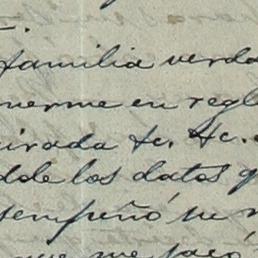 familia verda
nerme en regl
irada &c. &c.
dde los datos q
sempeñó su
que me sacó